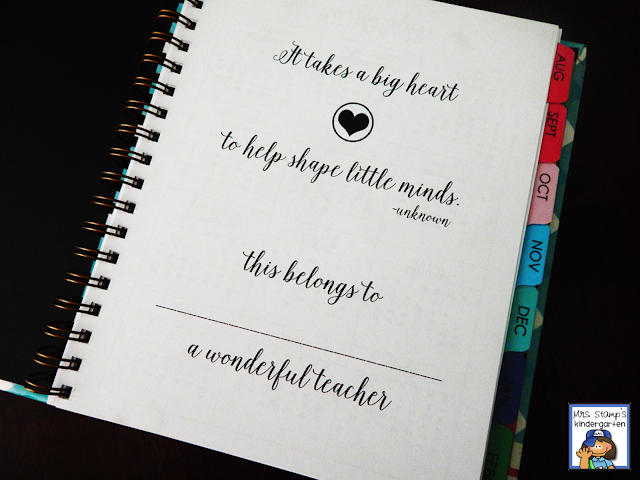 It takes a big heart
to help shape little minds.
-unknown
this belongs to
a wonderful teacher
AUG
SEPT
OCT
NOV
DEC
JAN
FEB
Mrs. Stamp's
kindergarten